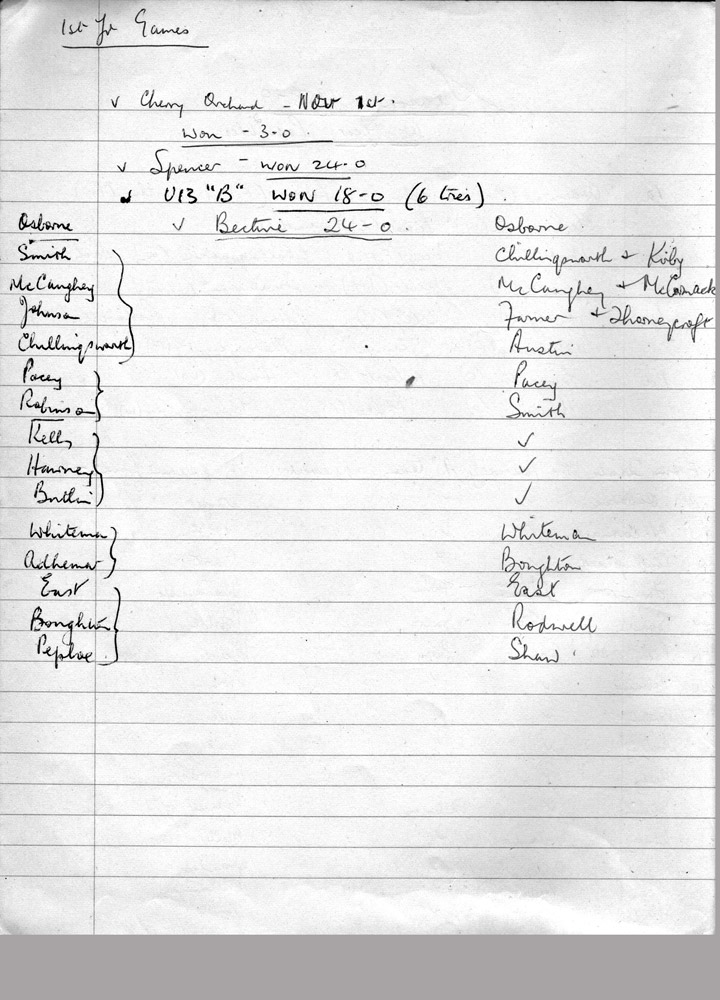 1st Yr Games
v Cherry Orchard - Nov 1st.
Won - 3-0.
v Spencer - WON 24-0
v U13 "B" WON 18-0 (6 tries).
Osborne v Bective 24-0. Osborne
Smith Chillingsworth + Kirby
McCaughey McCaughey + McCormack
Johnson Farmer + Thorneycroft
Chillingsworth Austin
Pacey Pacey
Robinson Smith
Kelly ✓
Hawney ✓
Butlin ✓
Whiteman Whiteman
Adhemar Boughton
East East
Boughton Rodwell
Peploe Shaw